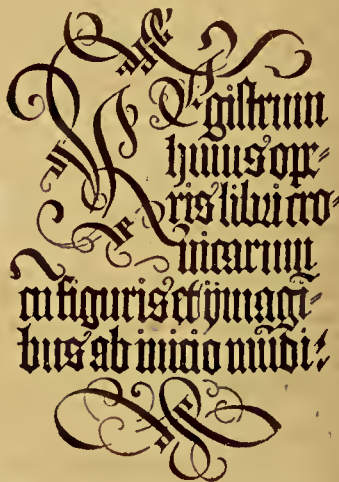 REgistrum
huius ope-
ris libri cro-
nicarum
cu figuris et ymagi-
bus ab inicio mudi: